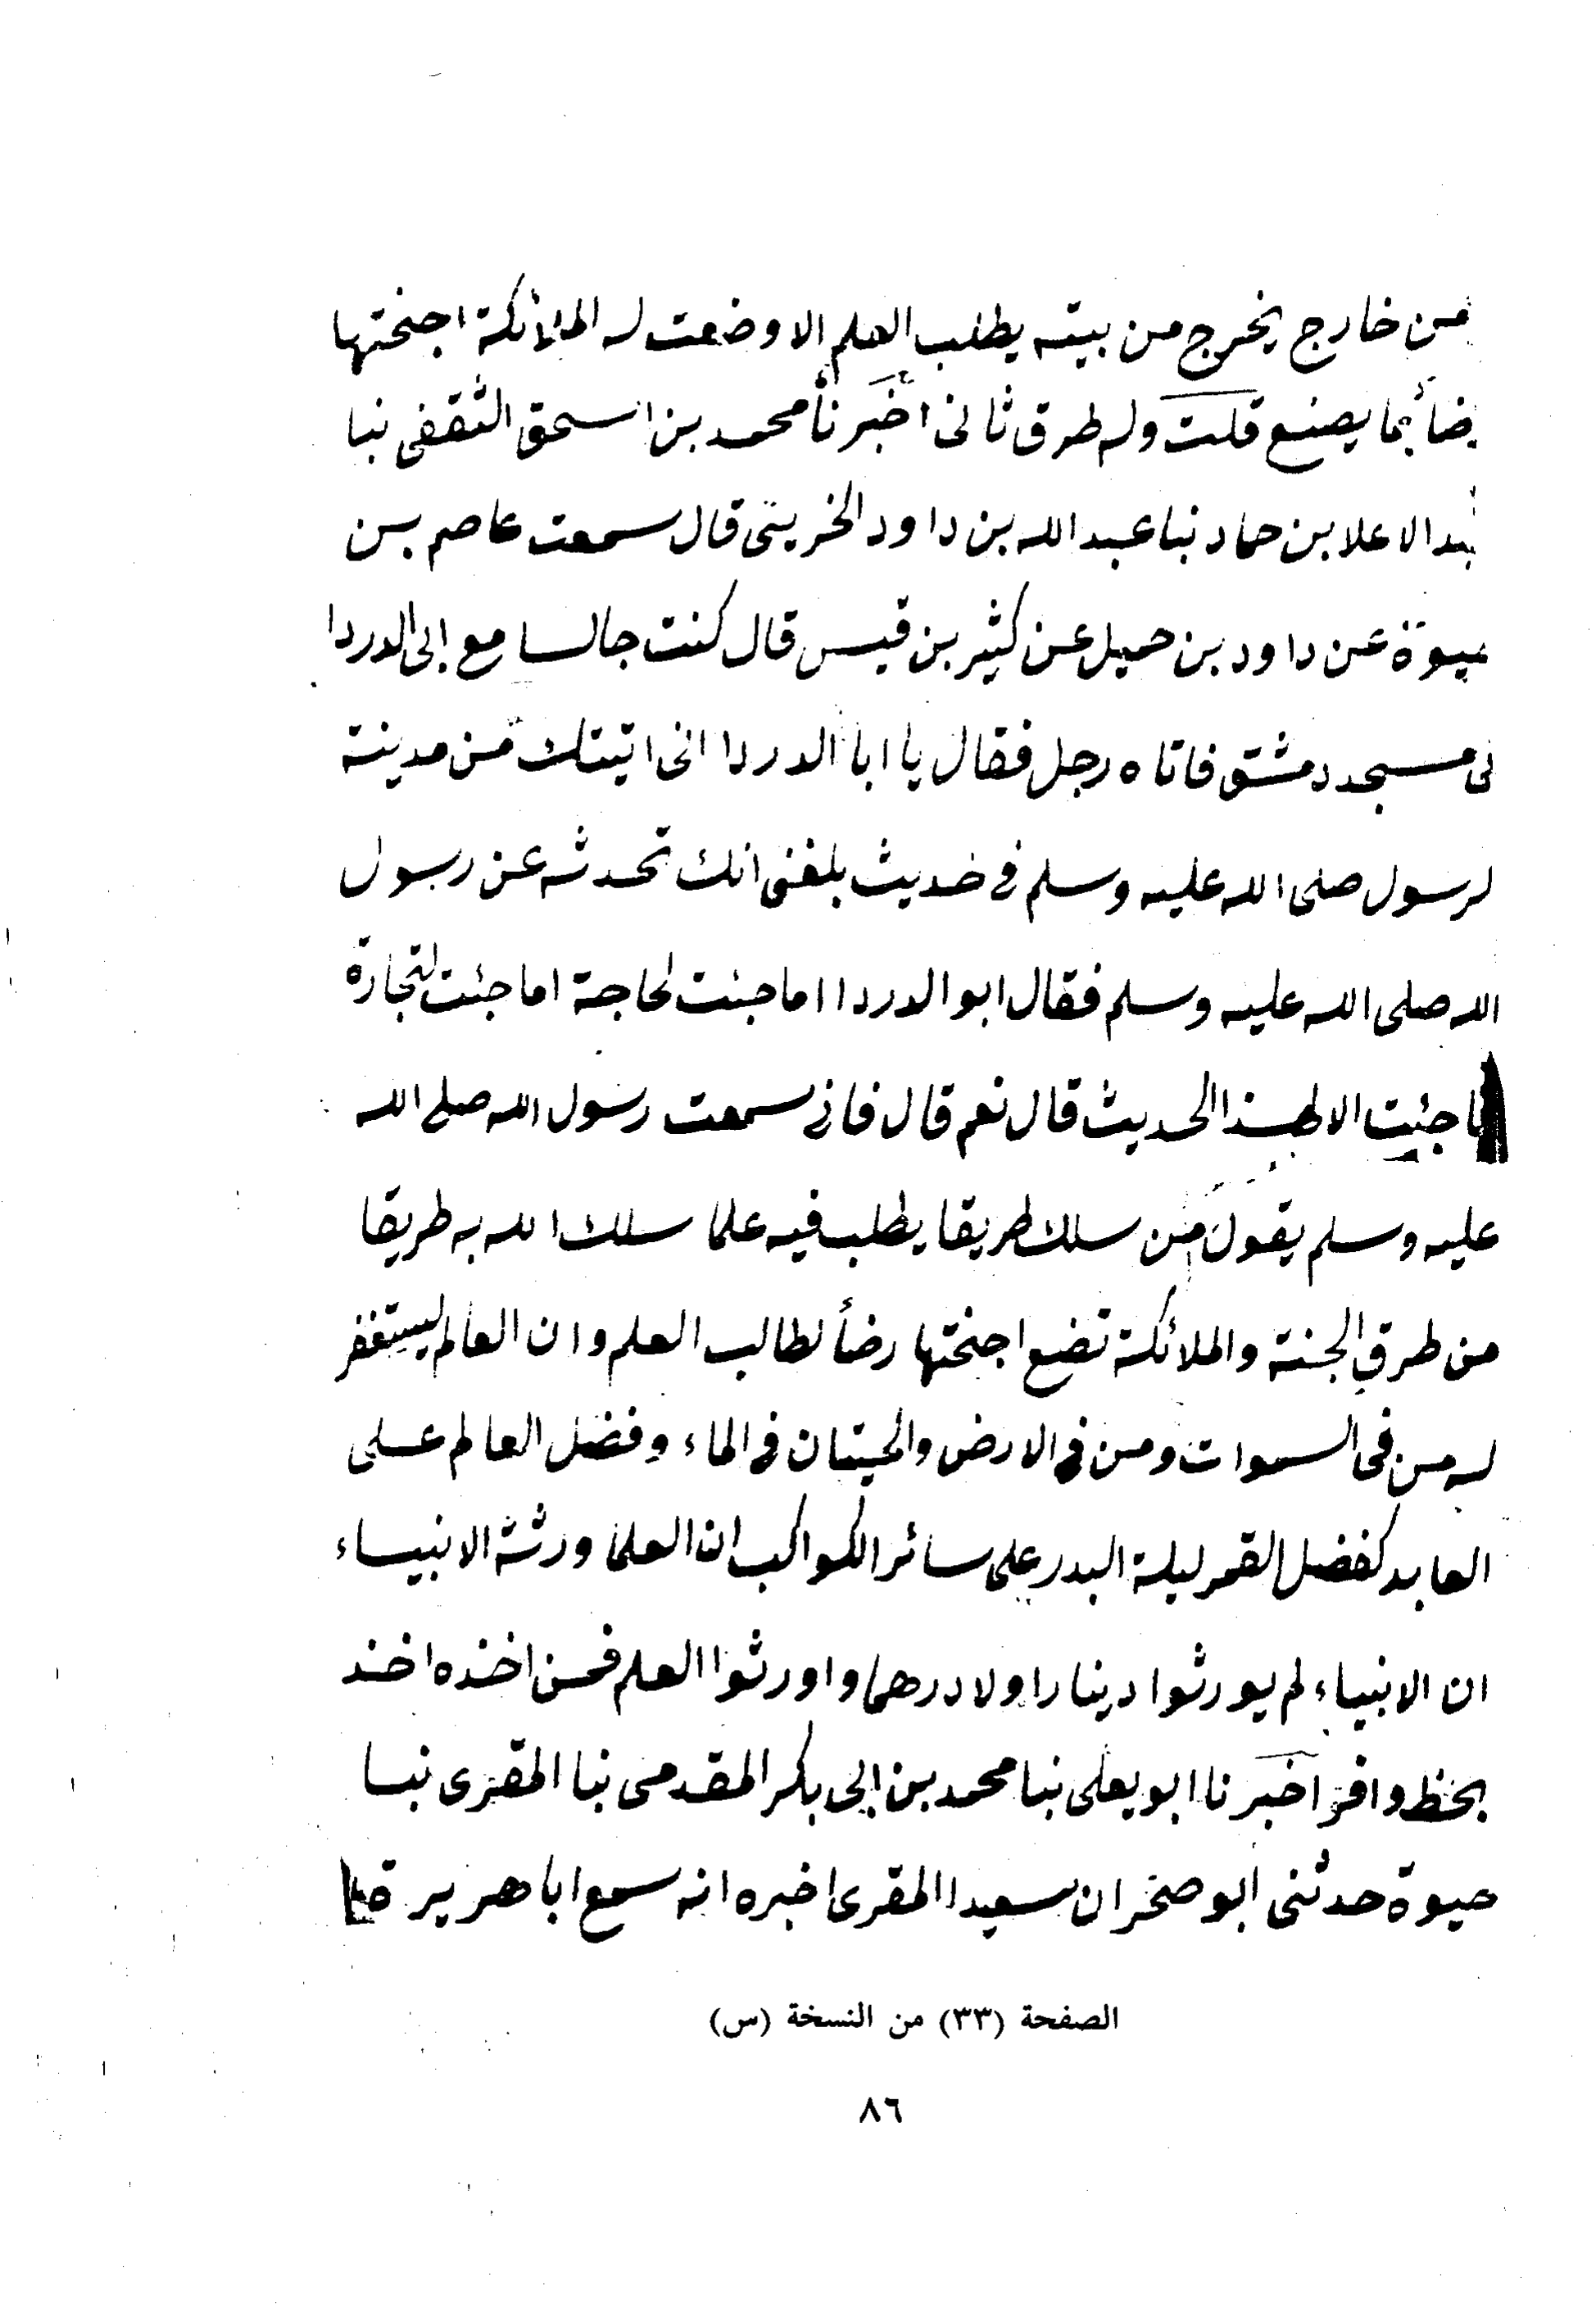 من خارج يخرج من بيته يطلب العلم الا وضعت له الملائكة اجنحتها
ضأ بما يصنع قلت وله طرق ثانى اخبرنا محمد بن اسحق الثقفى نبا
بد الاعلا بن حماد نبا عبد الله بن داود الخريبى قال سمعت عاصم بن
حيوة عن داود بن حميل عن كثير بن قيس قال كنت جالسا مع ابى الدردا
فى مسجد دمشق فاتاه رجل فقال يا ابا الدردا انى اتيتك من مدينة
لرسول صلى الله عليه وسلم فى حديث بلغنى انك تحدثه عن رسول
الله صلى الله عليه وسلم فقال ابو الدردا اما جئت لحاجة اما جئت لتجارة
ما جئت الا لهذا الحديث قال نعم قال فانى سمعت رسول الله صلى الله
عليه وسلم يقول من سلك طريقا يطلب فيه علما سلك الله به طريقا
من طرق الجنة والملائكة تضع اجنحتها رضأ لطالب العلم وان العالم ليستغفر
له من فى السموات ومن فى الارض والحيتان فى الماء وفضل العالم على
العابد كفضل القمر ليلة البدر على سائر الكواكب ان العلما ورثة الانبياء
ان الانبياء لم يورثوا دينارا ولا درهما واورثوا العلم فمن اخذه اخذ
بحظ وافر اخبرنا ابو يعلى نبا محمد بن ابى بكر المقدمى نبا المقرى نبا
حيوة حدثنى ابو صخر ان سعيدا المقرى اخبره انه سمع ابا هريرة
الصفحة (٣٣) من النسخة (س)
٨٦